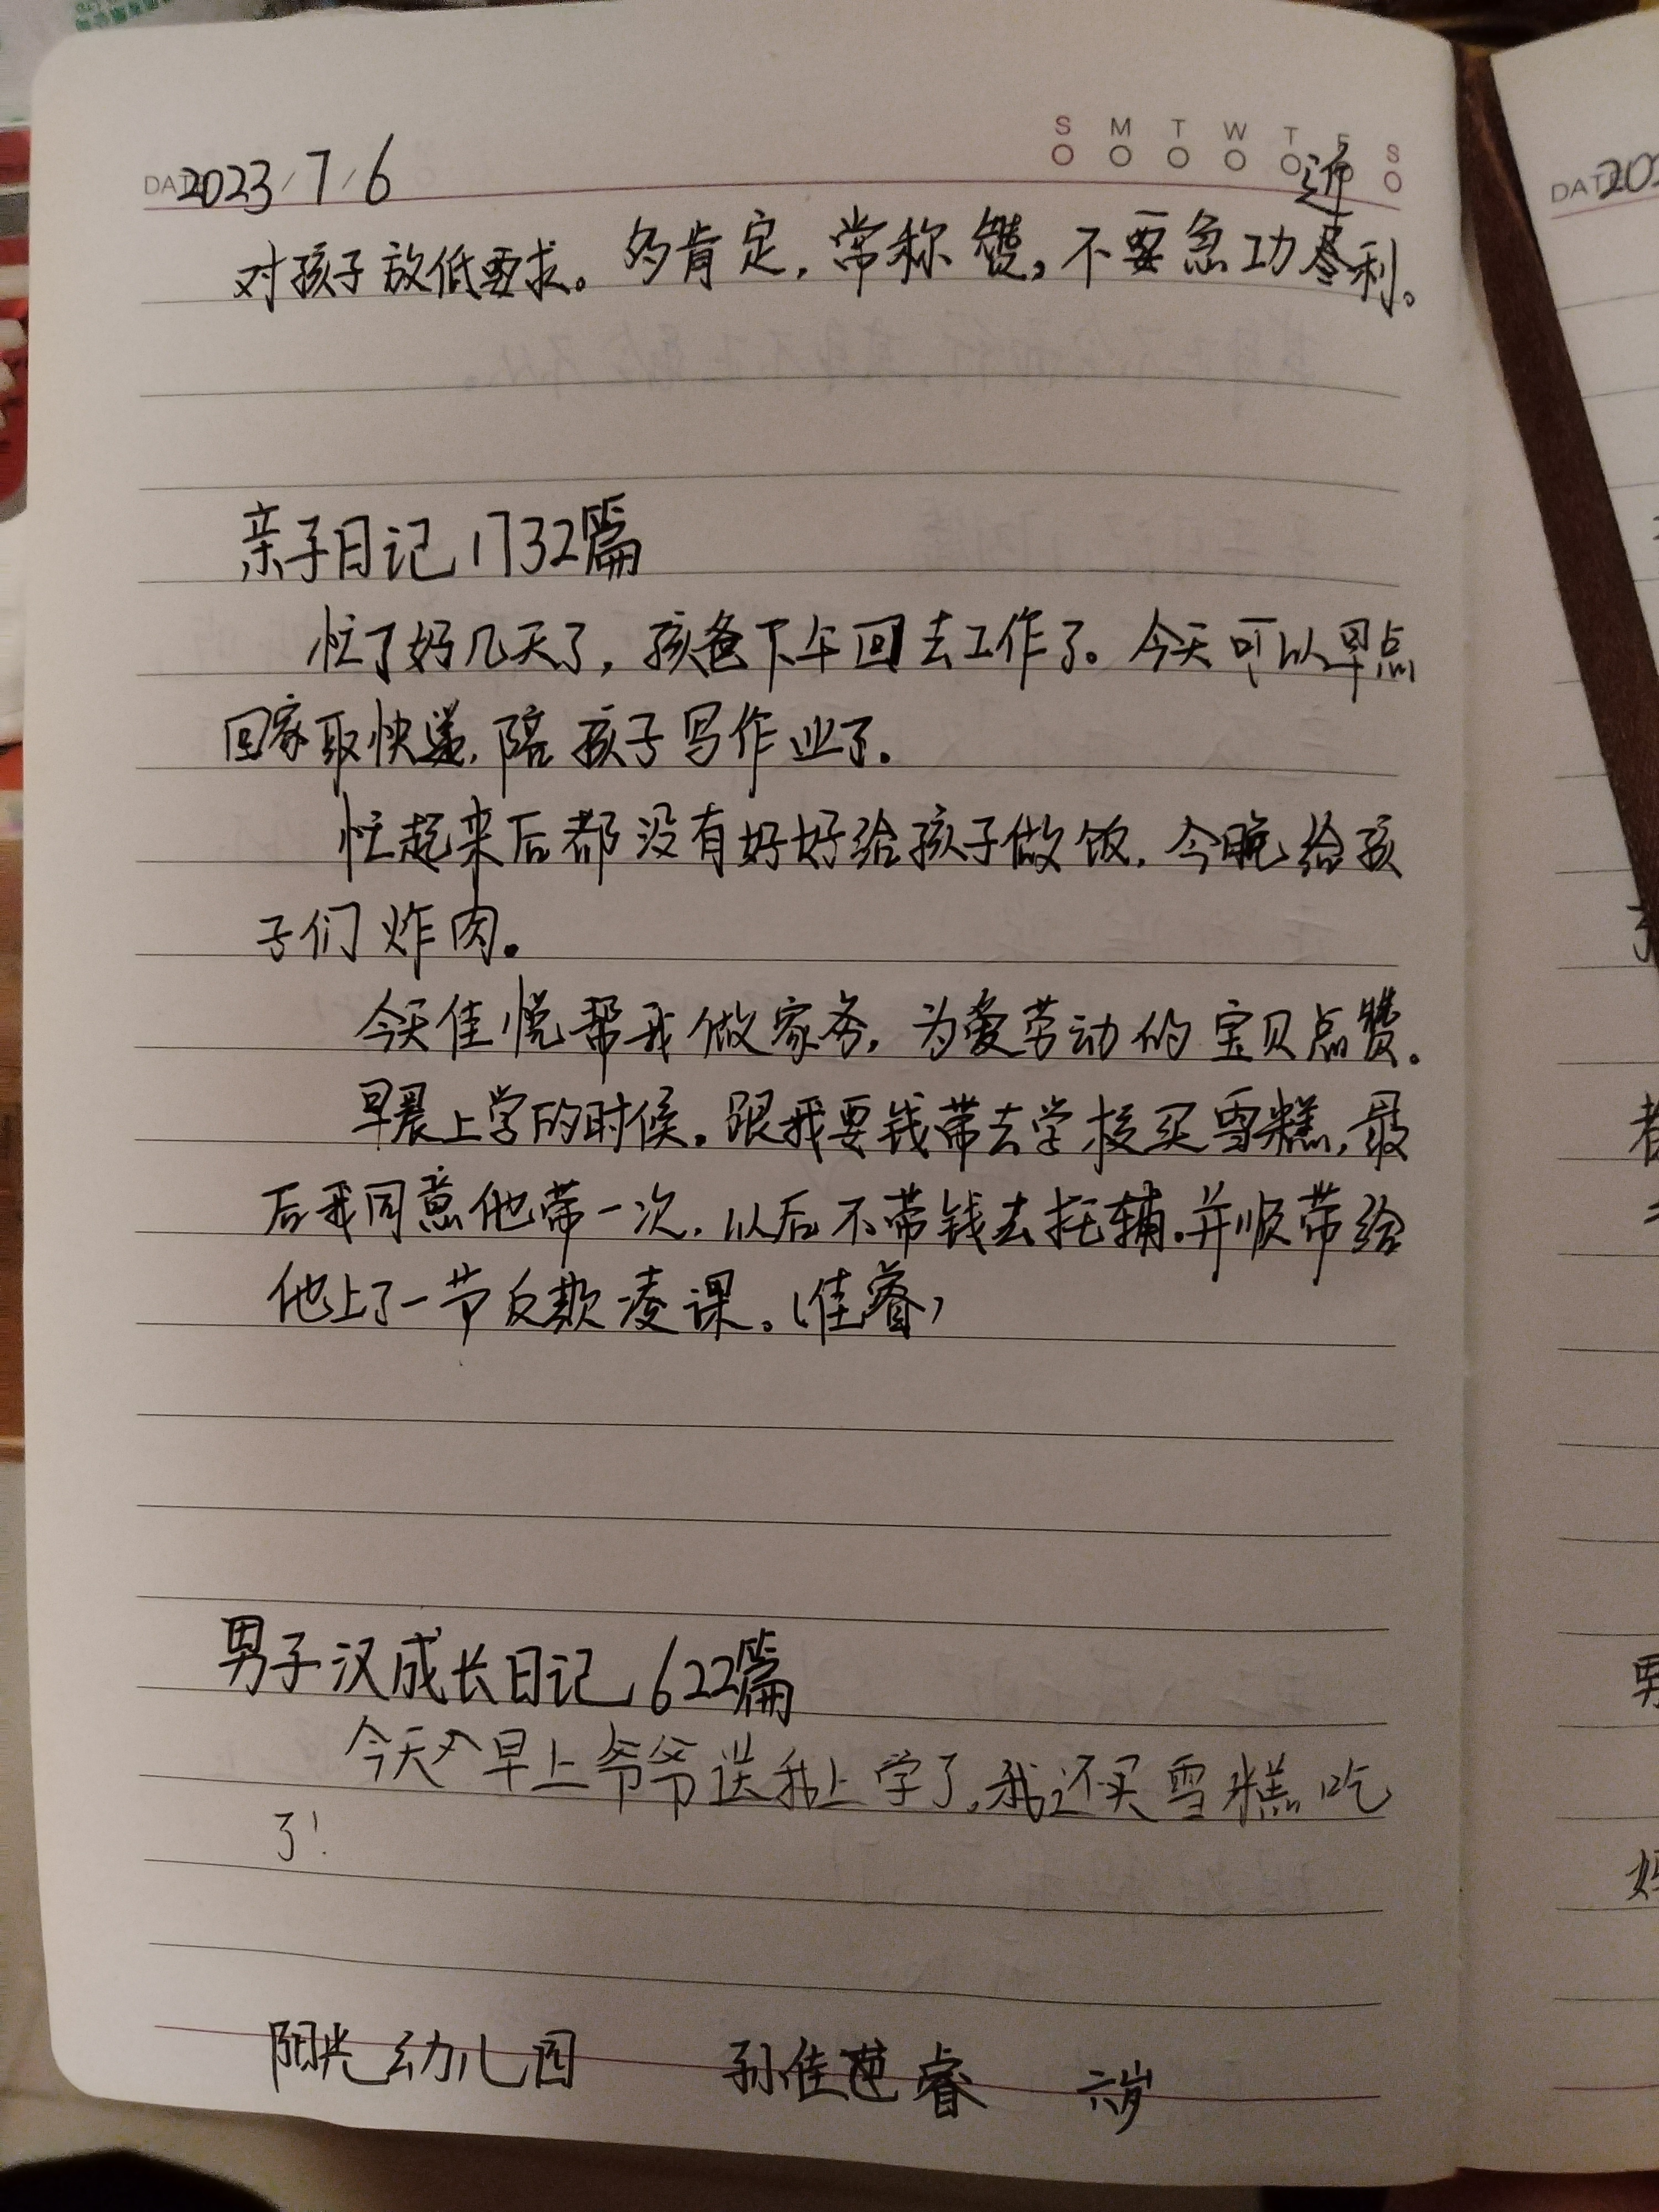 S M T W T F S
近
DATE 2023/7/6
对孩子放低要求。多肯定，常称赞，不要急功尽利。
亲子日记1732篇
忙了好几天了，孩爸下午回去工作了。今天可以早点
回家取快递，陪孩子写作业了.
忙起来后都没有好好给孩子做饭，今晚给孩
子们炸肉。
今天佳悦帮我做家务，为爱劳动的宝贝点赞。
早晨上学的时候，跟我要钱带去学校买雪糕，最
后我同意他带一次，以后不带钱去托辅，并顺带给
他上了一节反欺凌课。（佳睿）
男子汉成长日记622篇
今天早上爷爷送我上学了，我还买雪糕吃
了！
阳光幼儿园 孙佳睿 六岁
DATE 202
男